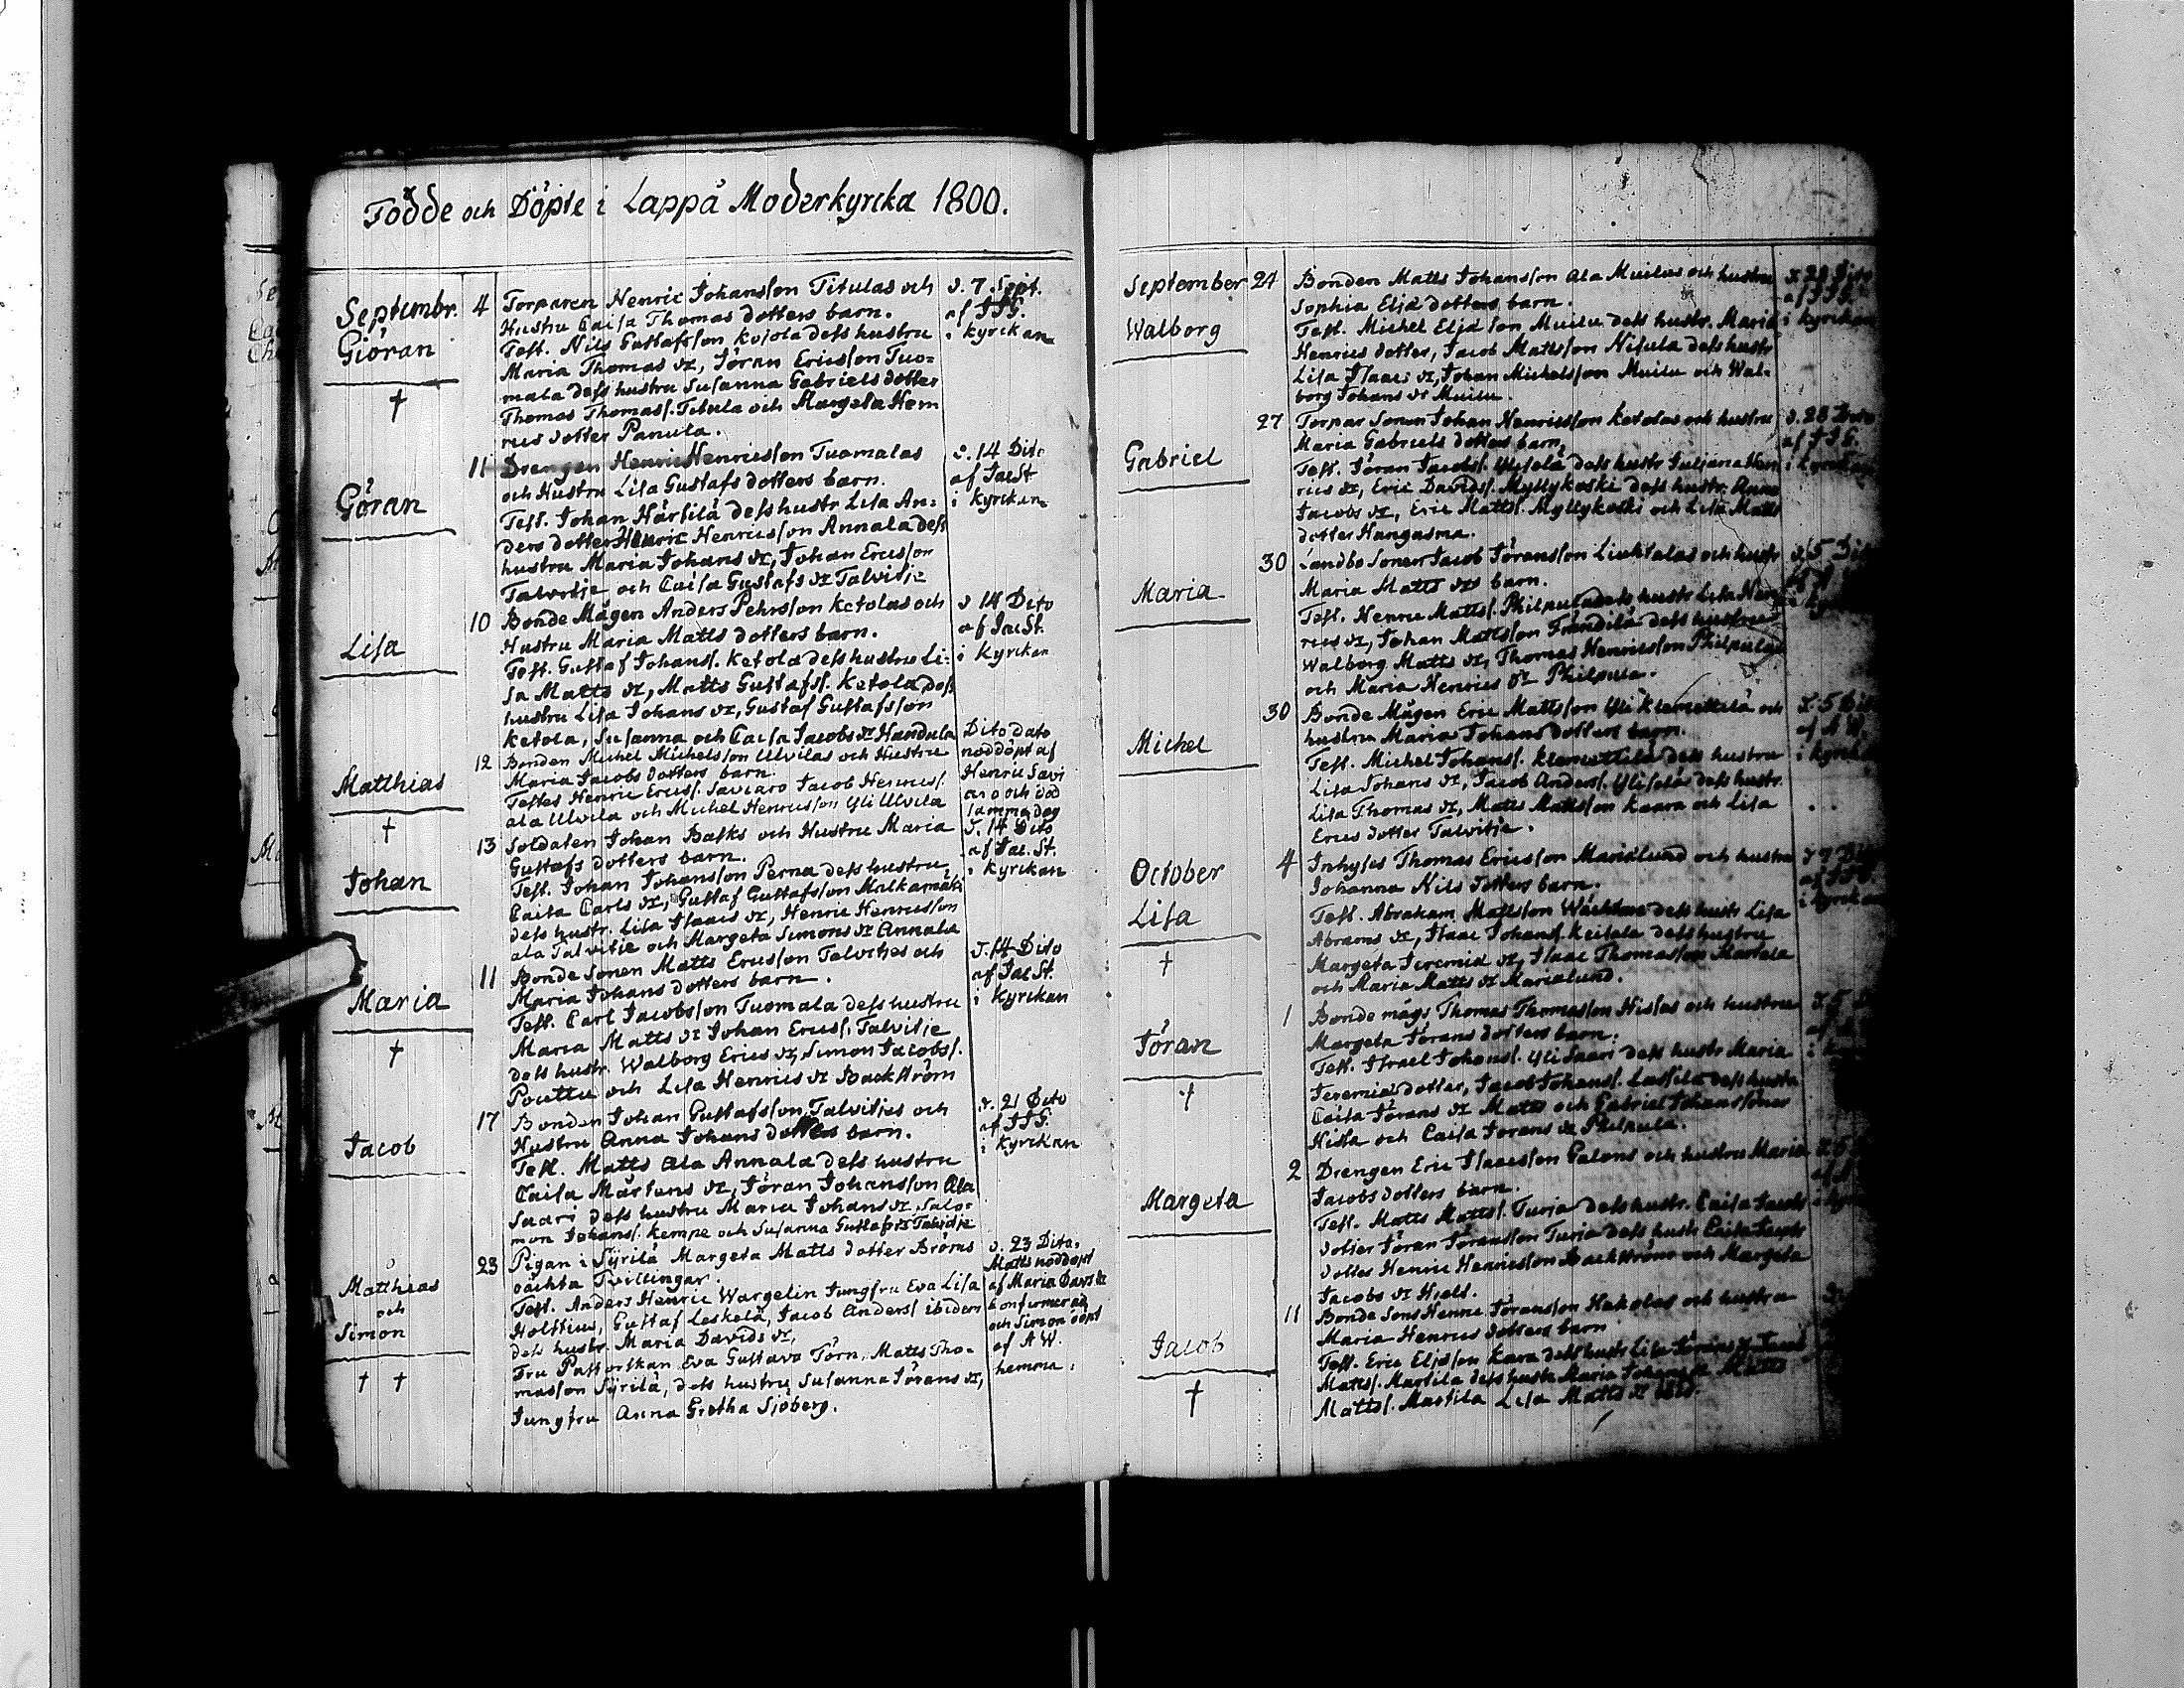 Födde och Döpte i Lappå Moderkyrcka 1800.
Septembr.
Giöran
†
4
Torparen Henric Johansson Titulas och
Hustru Caisa Thomas dotters barn.
Test. Nils Gustafsson Kojola dess hustru
Maria Thomas dr, Jöran Ericsson Tuo-
mala dess hustru Susanna Gabriels dotter
Thomas Thomass. Titula och Margeta Hen
rics dotter Panula.
d. 7 Sept.
af JJG.
i kyrckan
Göran
11
Drengen Henric Henricsson Tuomalas
och Hustru Lisa Gustafs dotters barn.
Test. Johan Härsilä dess hustr Lisa An-
ders dotter Henric Henricsson Annala dess
hustru Maria Johans dr, Johan Ericsson
Talvitje och Caisa Gustafs dr Talvitje
d. 14 Dito
af Jac St
i kyrckan
Lisa
10
Bonde Mågen Anders Pehrsson Ketolas och
Hustru Maria Matts dotters barn.
Test. Gustaf Johanss. Ketola dess hustru Li-
sa Matts dr, Matts Gustafss. Ketola dess
hustru Lisa Johans dr, Gustaf Gustafsson
Ketola, Susanna och Caisa Jacobs dr Handula
d 14 Dito
af Jac St.
i Kyrckan
Matthias
†
12
Bonden Michel Michelsson Ulvilas och Hustru
Maria Jacobs dotters barn.
Testes Henric Ericss. Saviaro Jacob Henricss.
ala Ulvila och Michel Henricsson Yli Ulvila
Dito dato
nöddöpt af
Henric Savi
aro och död
samma dag
Johan
13
Soldaten Johan Basks och Hustru Maria
Gustafs dotters barn.
Test. Johan Johansson Perna dess hustru
Caisa Carls dr, Gustaf Gustafsson Malkamäki
dess hustr. Lisa Isaacs dr, Henric Henricsson
ala Talvitje och Margeta Simons dr Annala
d. 14 Dito
af Jac. St.
i kyrckan
Maria
†
11
Bonde Sonen Matts Ericsson Talvitjes och
Maria Johans dotters barn.
Test. Carl Jacobsson Tuomala dess hustru
Maria Matts dr Johan Ericss. Talvitje
dess hustr. Walborg Erics dr, Simon Jacobss.
Pouttu och Lisa Henrics dr Backström
d. 14 Dito
af Jac St.
i kyrckan
Jacob
17
Bonden Johan Gustafsson Talvitjes och
Hustru Anna Johans dotters barn.
Test. Matts Ala Annala dess hustru
Caisa Mårtens dr, Jöran Johansson Ala
Saari dess hustru Maria Johans dr, Salo-
mon Johanss. Kempe och Susanna Gustafs dr Talvitje
d. 21 Dito
af JJG.
i kyrckan
Matthias
och
Simon
† †
23
Pigan i Syrilä Margeta Matts dotter Bröms
oächta Tvillingar.
Test. Anders Henric Wargelin Jungfru Eva Lisa
Holstius, Gustaf Leskelä, Jacob Anderss ibidem
dess hustr. Maria Davids dr,
Fru Pastorskan Eva Gustava Törn, Matts Tho-
masson Syrilä, dess hustru Susanna Jörans dr,
Jungfru Anna Gretha Sjöberg.
d. 23 Dito.
Matts nöddöpt
af Maria Davs dr
konfirmerad
och Simon döpt
af A W.
hemma.
September
Walborg
24
Bonden Matts Johansson Ala Muilus och hustru
Sophia Eljä dotters barn.
Test. Michel Eljäson Muilu dess hustr. Maria
Henrics dotter, Jacob Mattsson Nisula dess hustr
Lisa Isaacs dr, Johan Michelsson Muilu och Wal-
borg Johans dr Muilu.
af JJG.
i kyrckan
Gabriel
27
Torpar Sonen Johan Henricsson Ketolas och hustru
Maria Gabriels dotters barn,
Test. Jöran Jacobss. Ylisela dess hustr Juliana Hen
rics dr, Eric Davidss. Myllykoski dess hustr. Anna
Jacobs dr, Eric Mattss. Myllykoski och Lisa Matts
dotter Hangasma.
d. 28 Dito
af JJG.
i kyrckan
Maria
30
Landbo Sonen Jacob Jöransson Liuktalas och hustr
Maria Matts drs barn.
Test. Henric Mattss. Philpula dess hustr Lisa Hen
rics dr, Johan Mattsson Frändilä dess hustru
Walborg Matts dr, Thomas Henricsson Philpula
och Maria Henrics dr Philpula.
d. 5 Dit
Michel
30
Bonde Mågen Eric Mattsson Yli Klemettilä och
hustru Maria Johans dotters barn.
Test. Michel Johanss. Klemettilä dess hustru
Lisa Johans dr, Jacob Anderss. Ylisela dess hustr.
Lisa Thomas dr, Matts Mattsson Kaara och Lisa
Erics dotter Talvitje.
d. 5 Dit
af A W.
i kyrckan
October
Lisa
†
4
Inhyses Thomas Ericsson Marialund och hustru
Johanna Nils dotters barn.
Test. Abraham Mattsson dess hustr Lisa
Abrams dr, Isaac Johanss. Keitala dess hustru
Margeta Jeremiä dr, Isaac Thomasson Martela
och Maria Matts dr Marialund.
i kyrckan
Jöran
†
1
Bonde mågs Thomas Thomasson Hissas och hustru
Margeta Jörans dotters barn.
Test. Israel Johanss. Yli Saari dess hustr Maria
Jeremiæ dotter, Jacob Johanss. Lassila dess hustr
Caisa Jörans dr Matts och Gabriel Johanssöner
Hissa och Caisa Jörans dr Philpula.
Margeta
2
Drengen Eric Isaacsson Palons och hustru Maria
Jacobs dotters barn.
Test. Matts Mattss. Turja dess hustr. Caisa Jacobs
dotter Jöran Jöransson Turja dess hustr Caisa Jacobs
dotter Henric Henricsson Backström och Margeta
Jacobs dr
Jacob
†
11
Bonde Sons Henric Jöransson Hakolas och hustru
Maria Henrics dotters barn
Test. Eric Eljässon Kara dess hustr Lisa Jörans dr
Mattss. Martila dess hustr Maria Johans dr Matts
Mattss. Martila Lisa Matts dr